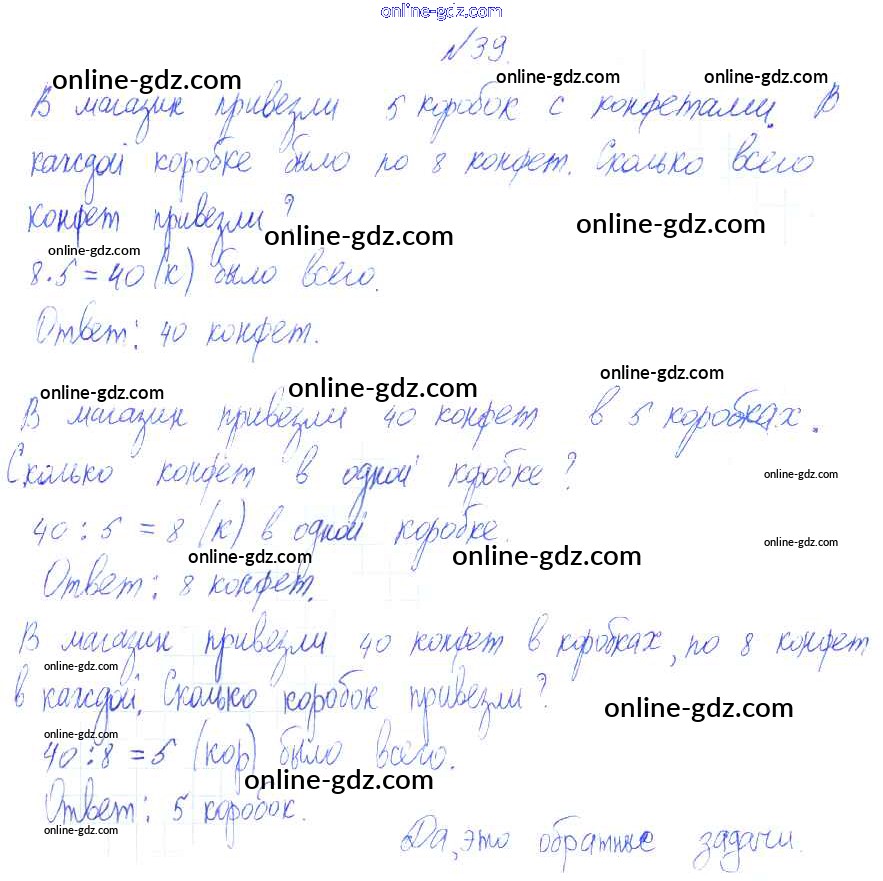 online-gdz.com
№39.
online-gdz.com online-gdz.com online-gdz.com
В магазин привезли 5 коробок с конфетами. В
каждой коробке было по 8 конфет. Сколько всего
конфет привезли?
online-gdz.com online-gdz.com online-gdz.com
8·5=40 (к) было всего.
Ответ: 40 конфет.
online-gdz.com online-gdz.com online-gdz.com
В магазин привезли 40 конфет в 5 коробках.
Сколько конфет в одной коробке?
online-gdz.com
40:5=8 (к) в одной коробке.
online-gdz.com
online-gdz.com online-gdz.com
Ответ: 8 конфет.
В магазин привезли 40 конфет в коробках, по 8 конфет
online-gdz.com
в каждой. Сколько коробок привезли?
online-gdz.com
online-gdz.com
40:8=5 (кор) было всего.
online-gdz.com
Ответ: 5 коробок.
online-gdz.com
Да, это обратные задачи.